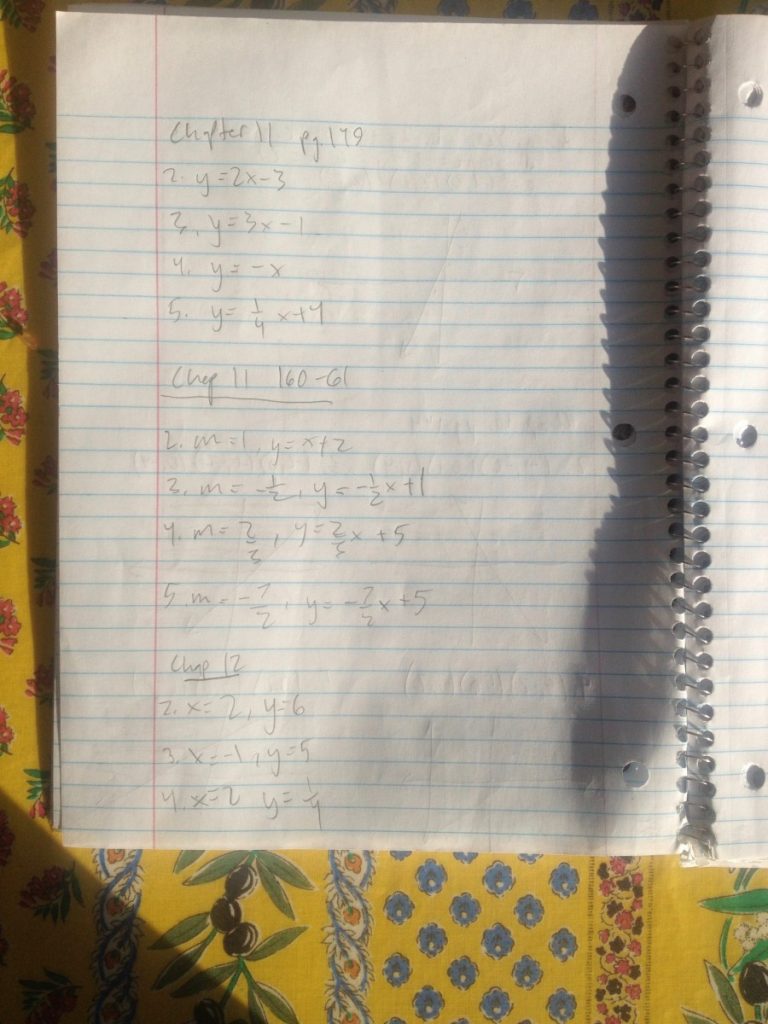 Chapter 11 pg 149
2. y=2x-3
3. y=3x-1
4. y=-x
5. y=1/4 x+4
Chap 11 160-61
2. m=1, y=x+2
3. m=-1/2, y=-1/2x+1
4. m=2/3, y=2/3x+5
5. m=-7/2, y=-7/2x+5
Chap 12
2. x=2, y=6
3. x=-1, y=5
4. x=2 y=1/4